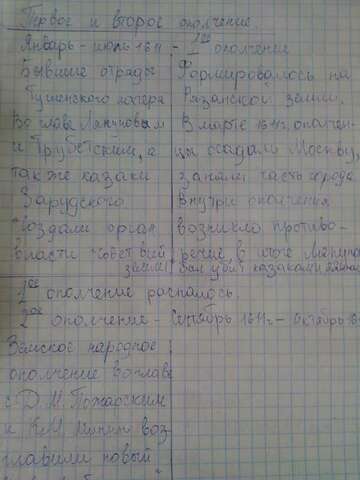 Первое и второе ополчение.
Январь - июль 1611 - I ое ополчение
Бывшие отряды
Тушинского лагеря
Во главе Ляпуновым
и Трубецким, а
также казаки
Зарудского
Создали орган
власти "Совет всей
земли"
Формировалось на
Рязанской земли.
В марте 1611г. ополчен-
цы осадали Москву,
заняли часть города
Внутри ополчения
возникло противо-
речие, в итоге Ляпуно
был убит казаками
1ое ополчение распалось.
2ое ополчение - Сентябрь 1611г - Октябрь 16
Земское народное
ополчение во главе
с Д.М. Пожарским
и К.М. Минин воз
главили новый